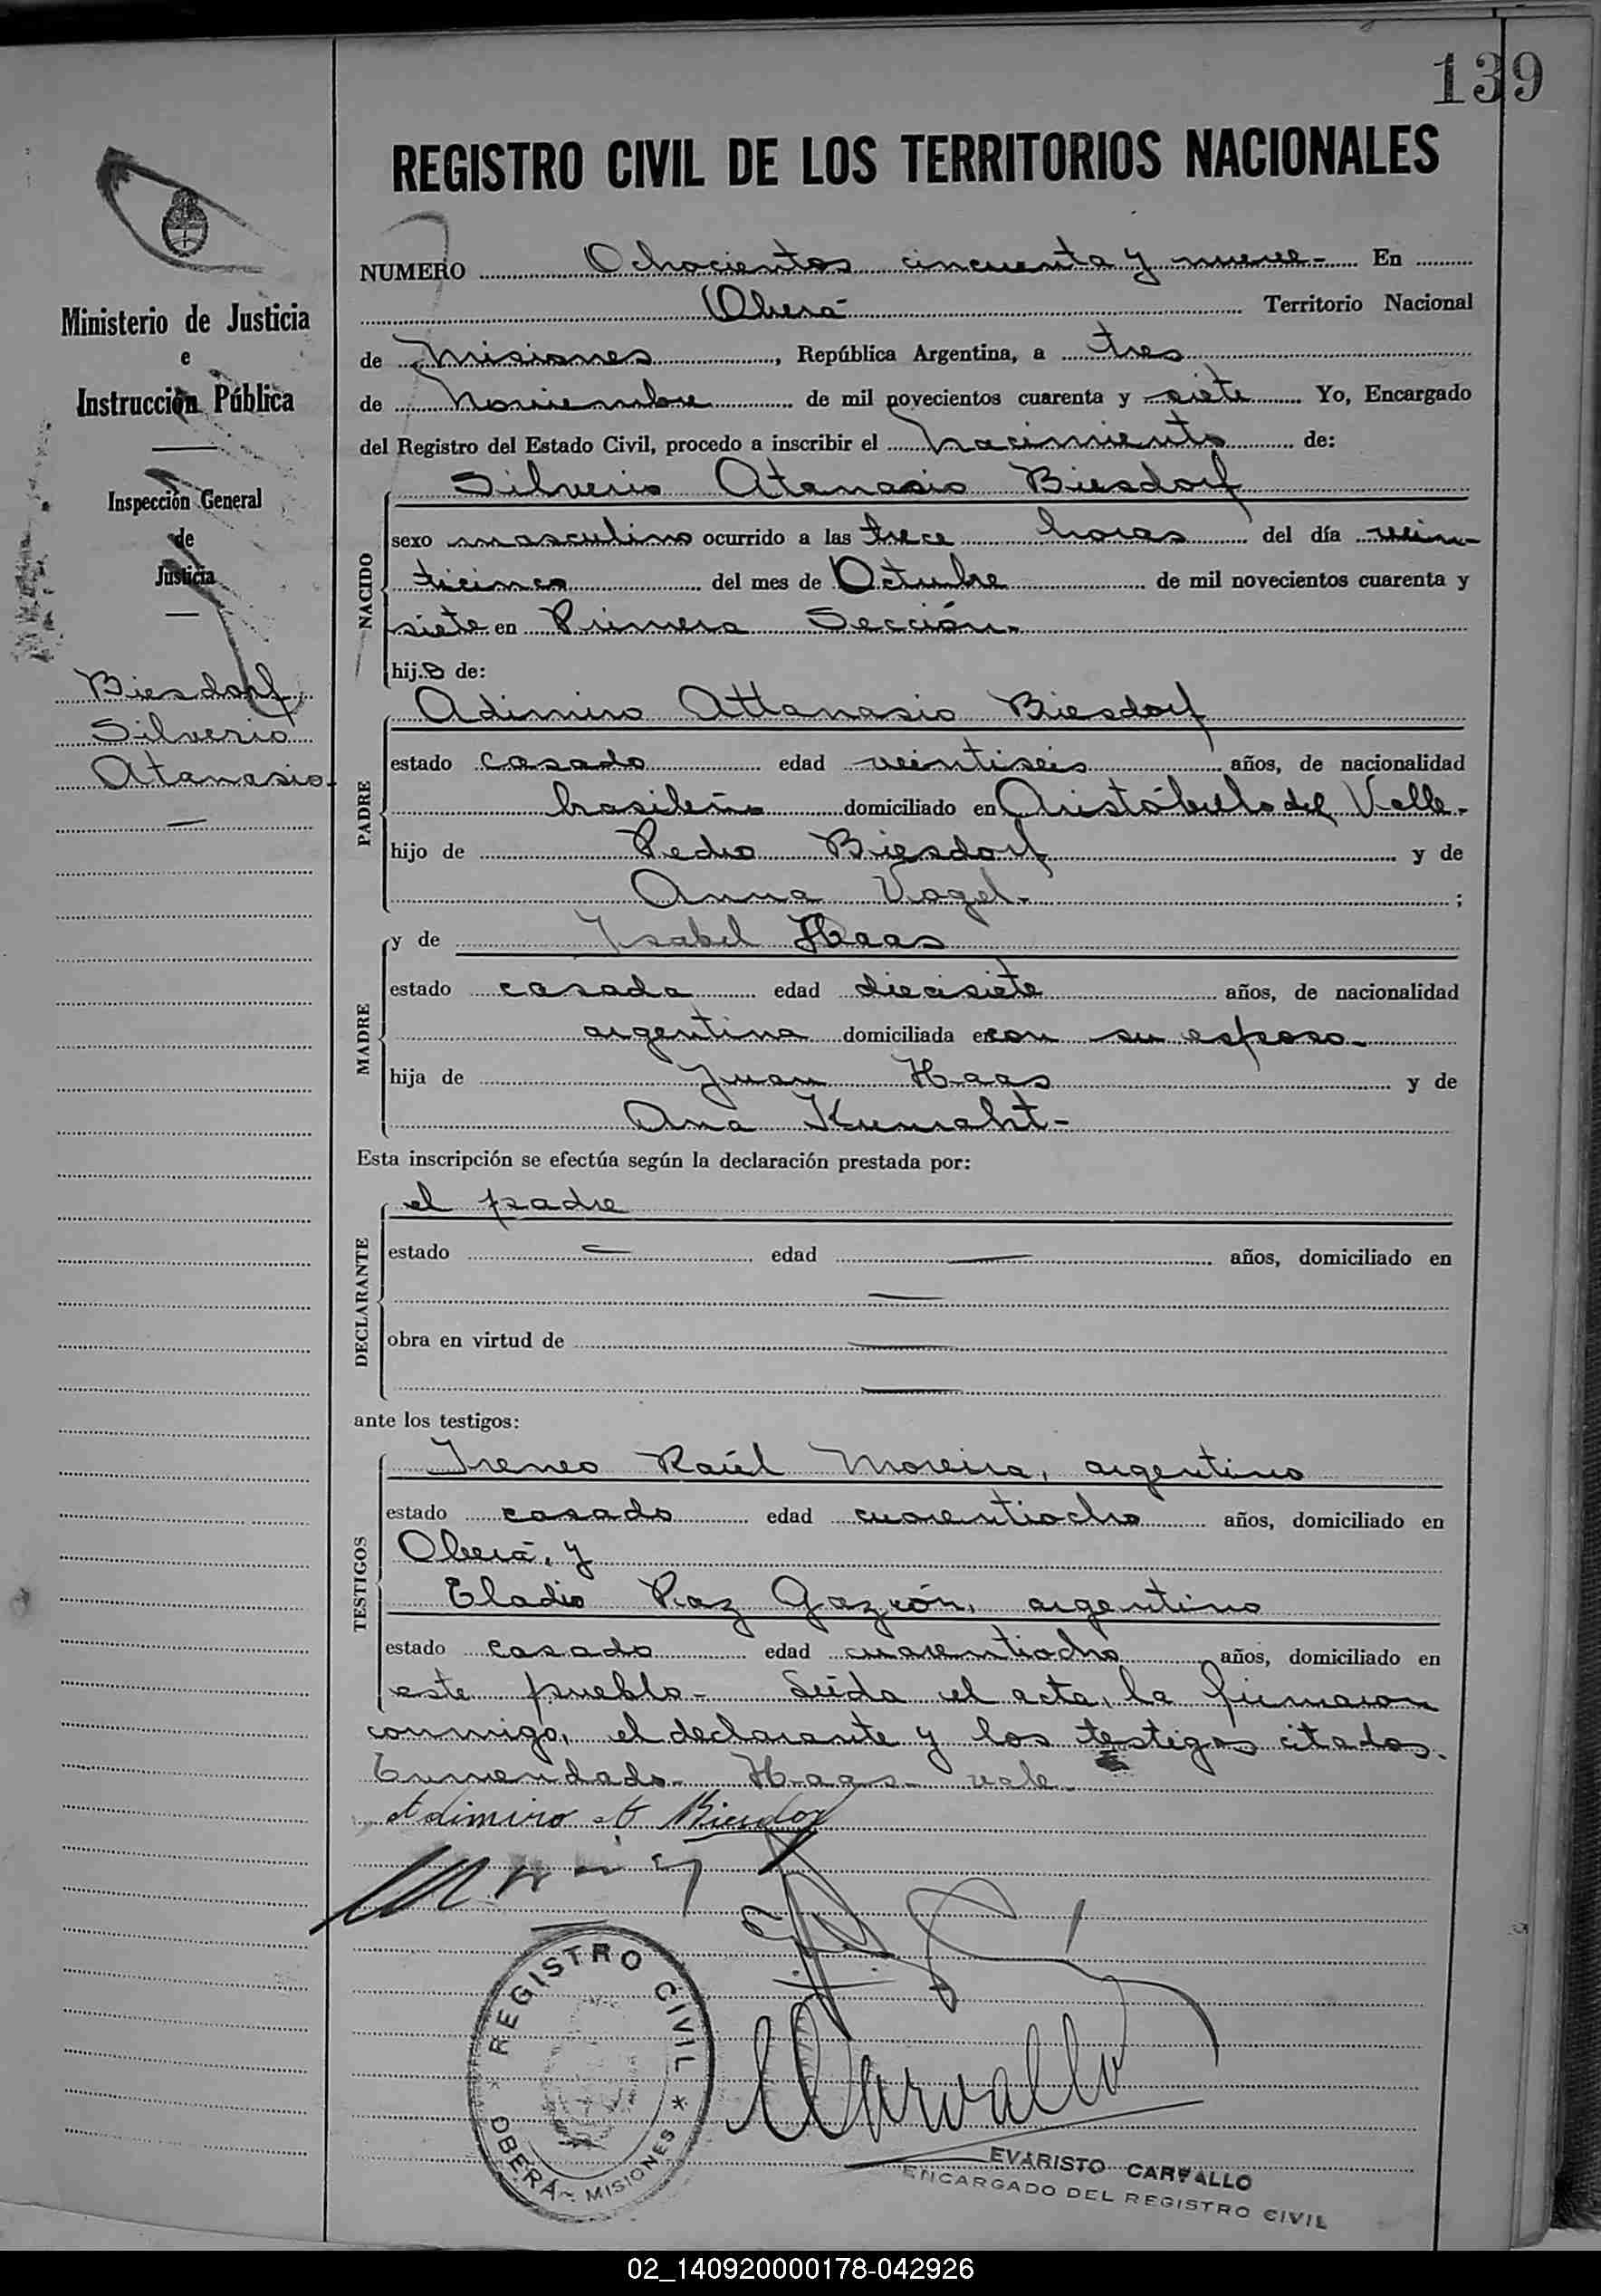 139
REGISTRO CIVIL DE LOS TERRITORIOS NACIONALES
Ministerio de Justicia
e
Instrucción Pública
Inspección General
de
Justicia
Biesdorf
Silverio
Atanasio
NUMERO Ochocientos cincuenta y nueve- En
Oberá- Territorio Nacional
de Misiones, República Argentina, a tres
de Noviembre de mil novecientos cuarenta y siete Yo, Encargado
del Registro del Estado Civil, procedo a inscribir el nacimiento de:
Silverio Atanasio Biesdorf
NACIDO
sexo masculino ocurrido a las trece horas del día vein-
ticinco del mes de Octubre de mil novecientos cuarenta y
siete en Primera Sección-
hijo de:
Adimiro Attanasio Biesdorf
PADRE
estado casado edad veintiseis años, de nacionalidad
brasileño domiciliado en Aristóbulo del Valle-
hijo de Pedro Biesdorf y de
Anna Vogel- ;
MADRE
y de Ysabel Haas
estado casada edad diecisiete años, de nacionalidad
argentina domiciliada en con su esposo-
hija de Juan Haas y de
Ana
Esta inscripción se efectúa según la declaración prestada por:
el padre
DECLARANTE
estado — edad — años, domiciliado en
—
obra en virtud de —
—
ante los testigos:
TESTIGOS
Ireneo Raúl Moreira, argentino
estado casado edad cuarentiocho años, domiciliado en
Oberá, y
Eladio Paz Gazcón, argentino
estado casado edad cuarentiocho años, domiciliado en
este pueblo- Leída el acta, la firmaron
conmigo, el declarante y los testigos citados.
Enmendado- Haas- vale-
Adimiro At Biesdorf
REGISTRO CIVIL
* OBERÁ - MISIONES *
Carvallo
EVARISTO CARVALLO
ENCARGADO DEL REGISTRO CIVIL
02_140920000178-042926